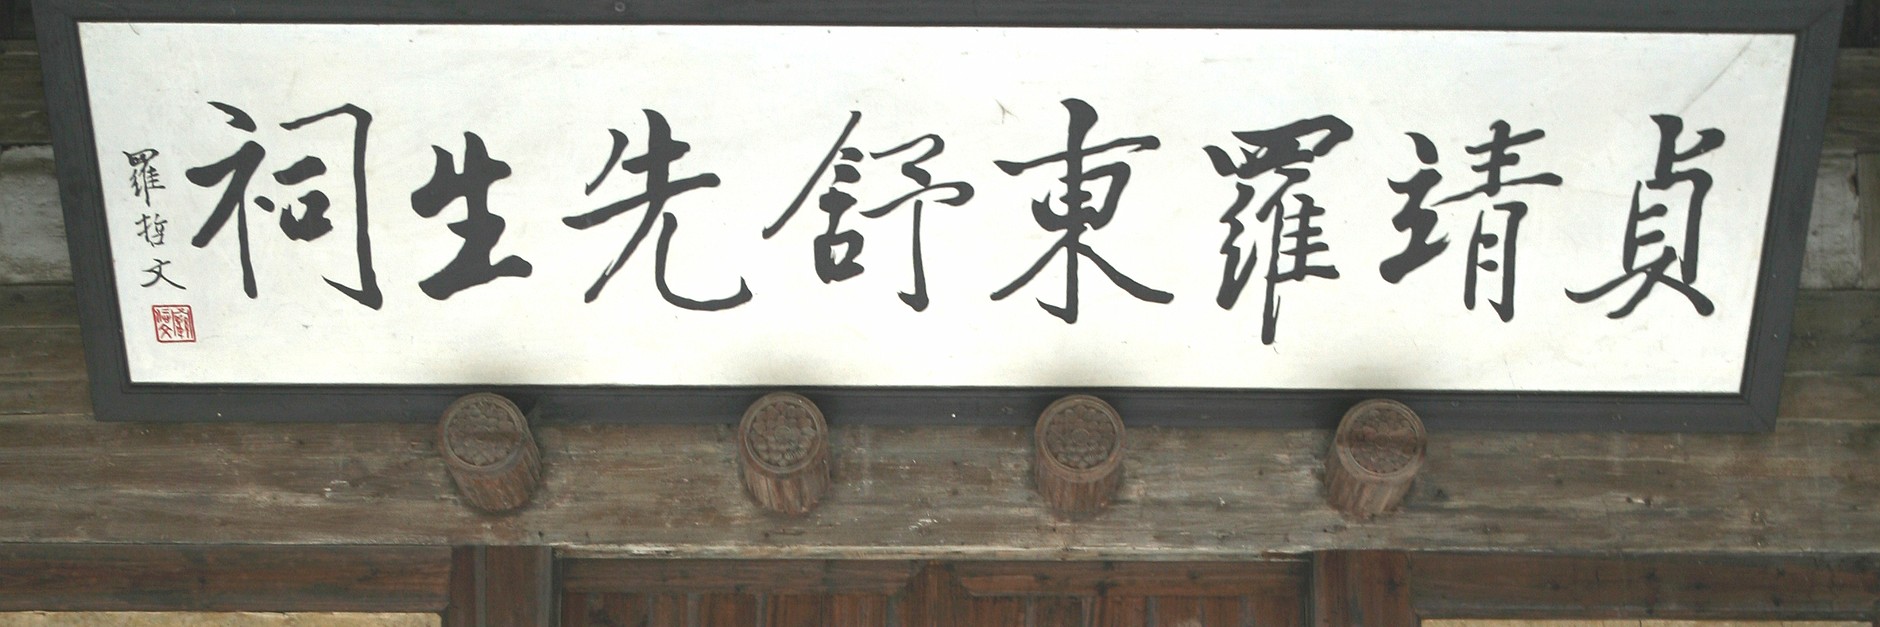 貞靖羅東舒先生祠
羅哲文